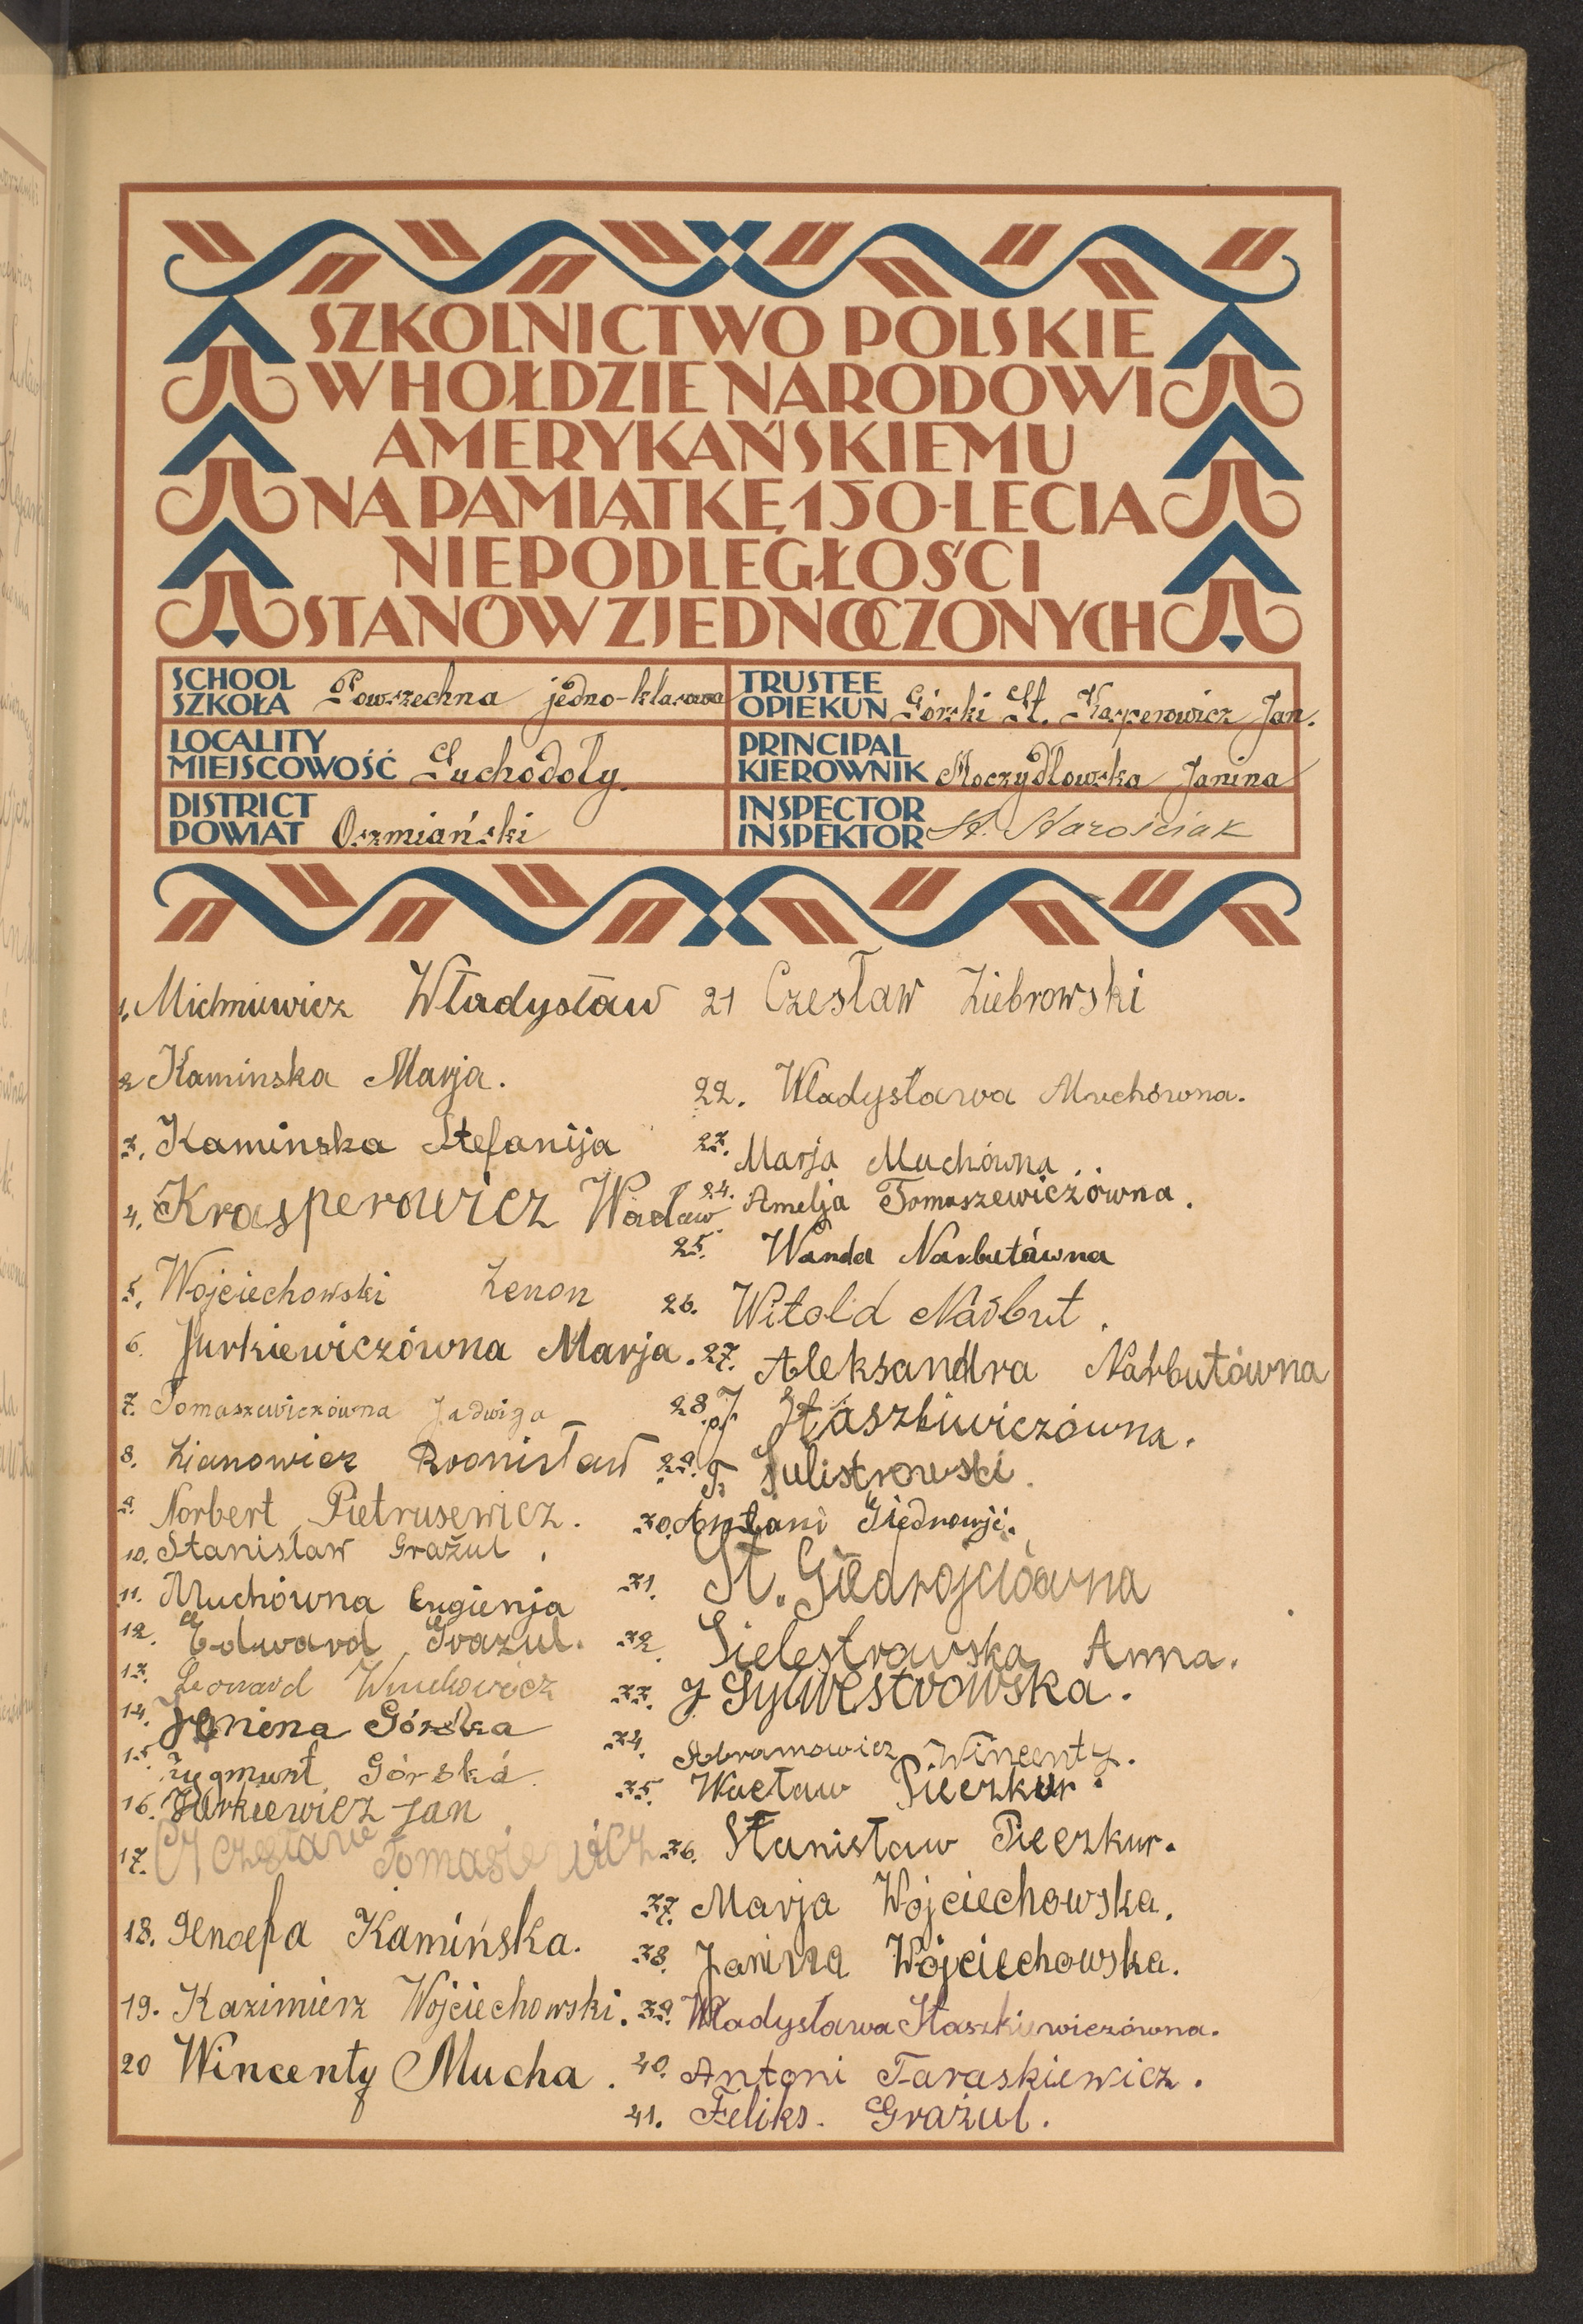 SZKOLNICTWO POLSKIE
W HOŁDZIE NARODOWI
AMERYKAŃSKIEMU
NA PAMIĄTKĘ 150-LECIA
NIEPODLEGŁOŚCI
STANÓW ZJEDNOCZONYCH
SCHOOL
SZKOŁA Powszechna jedno-klasowa
TRUSTEE
OPIEKUN Górski St. Kasperowicz Jan.
LOCALITY
MIEJSCOWOŚĆ Suchodoły.
PRINCIPAL
KIEROWNIK Moczydłowska Janina
DISTRICT
POWIAT Oszmiański
INSPECTOR
INSPEKTOR St. Starościak
1. Michniewicz Władysław
2 Kaminska Marja.
3. Kaminska Stefanija
4. Krasperowicz Wacław
5. Wojciechowski Zenon
6. Jurkiewiczówna Marja.
7. Tomaszewiczówna Jadwiga
8. Zianowicz Bronisław
9. Norbert Pietrusewicz.
10. Stanisław Grażul.
11. Muchówna Eugienja
12. Edward Grazul.
13. Leonard
14. Janina Górska
15. Zygmunt Górská.
16. Jurkiewicz Jan
17. Czesław Tomasiewicz
18. Genoefa Kamińska.
19. Kazimierz Wojciechowski.
20 Wincenty Mucha.
21 Czesław Ziebrowski
22. Władysława Muchówna.
23. Marja Muchówna..
24. Amelja Tomaszewiczówna.
25. Wanda Narbutówna
26. Witold Narbut.
27. Aleksandra Narbutówna
28. J. Staszkiwiczówna.
29. F. Sulistrowski.
30. Antoni Giedrojć.
31. St. Giedrojcióowna
32. Sielestrowska Anna.
33. J Sylwestrowska.
34. Abramowicz Wincenty.
35. Wacław Pieczkur.
36. Stanisław Pieczkur.
37. Marja Wojciechowska.
38. Janina Wojciechowska.
39. Władysława Staszkiewiczówna.
40. Antoni Taraskiewicz.
41. Feliks. Grażul.